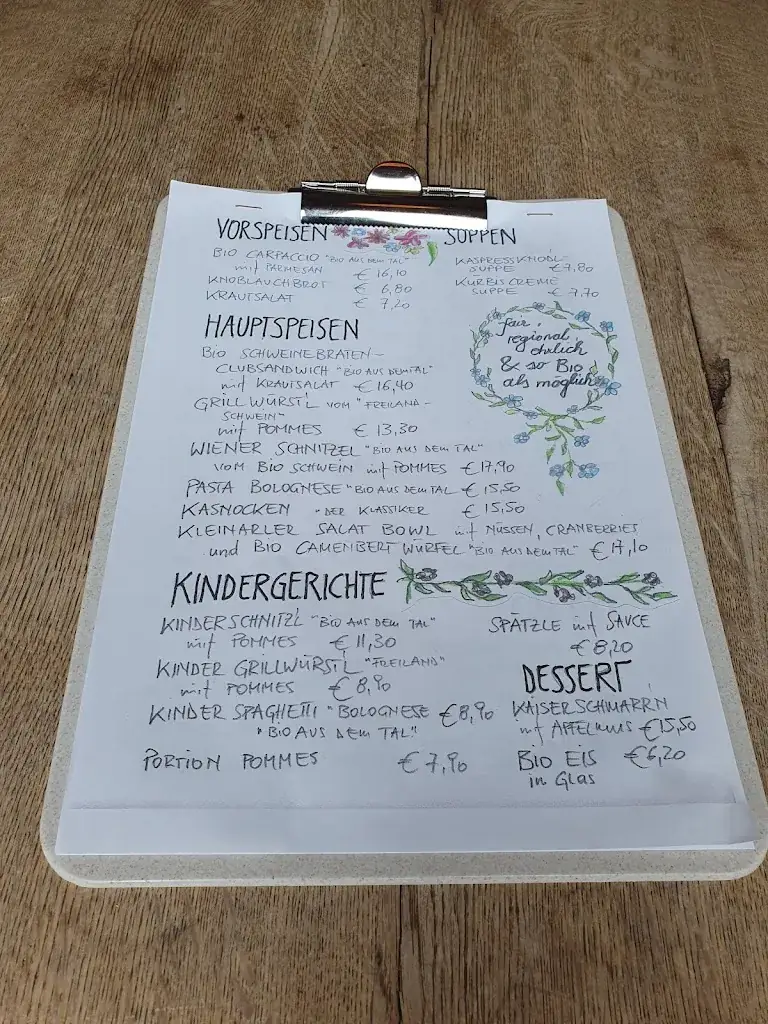 VORSPEISEN
BIO CARPACCIO "BIO AUS DEM TAL"
mit PARMESAN € 16,10
KNOBLAUCHBROT € 6,80
KRAUTSALAT € 7,20
SUPPEN
KASPRESSKNÖDL-
SUPPE €7,80
KÜRBISCREME
SUPPE € 7,70
fair,
regional,
ehrlich
& so BIO
als möglich
HAUPTSPEISEN
BIO SCHWEINEBRATEN-
CLUBSANDWICH "BIO AUS DEM TAL"
mit KRAUTSALAT €16,40
GRILLWÜRST'L VOM "FREILAND-
SCHWEIN"
mit POMMES € 13,30
WIENER SCHNITZEL "BIO AUS DEM TAL"
VOM BIO SCHWEIN mit POMMES €17,90
PASTA BOLOGNESE "BIO AUS DEM TAL €15,50
KASNOCKEN "DER KLASSIKER €15,50
KLEINARLER SALAT BOWL mit NÜSSEN, CRANBERRIES
und BIO CAMENBERT WÜRFEL "BIO AUS DEM TAL" €17,10
KINDERGERICHTE
KINDERSCHNITZ'L "BIO AUS DEM TAL"
mit POMMES €11,30
KINDER GRILLWÜRST'L "FREILAND"
mit POMMES €8,90
KINDER SPAGHETTI "BOLOGNESE €8,90
"BIO AUS DEM TAL"
PORTION POMMES €7,90
SPÄTZLE mit SAUCE
€8,20
DESSERT
KAISERSCHMARR'N
mit APFELMUS €15,50
BIO EIS €6,20
in Glas